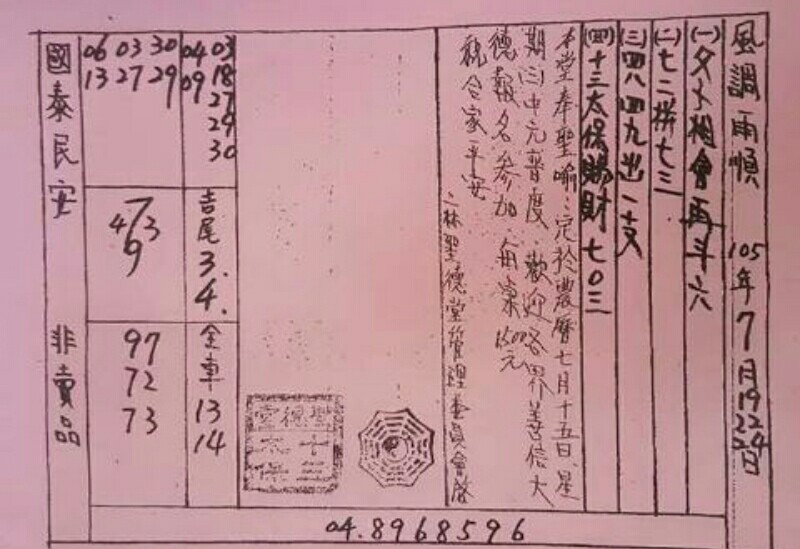 風調雨順 105年7月19 22 24日
(一)夕卜相會再斗六
(二)七二拼七三
(三)四八四九出一十又
(四)十三太保賜財七0三
本堂奉聖喻:定於農曆七月十五日、星
期三中元普度、歡迎各界善信大
德報名參加、每桌1500元
祝合家平安
二林聖德堂管理委員會啓
04 03
09 18
27
29
30
06 03 30
13 27 29
吉尾
3.
4.
7
4 3
9
全車
13
14
97
72
73
國泰民安 非賣品
聖德堂
十三
太保
04.8968596